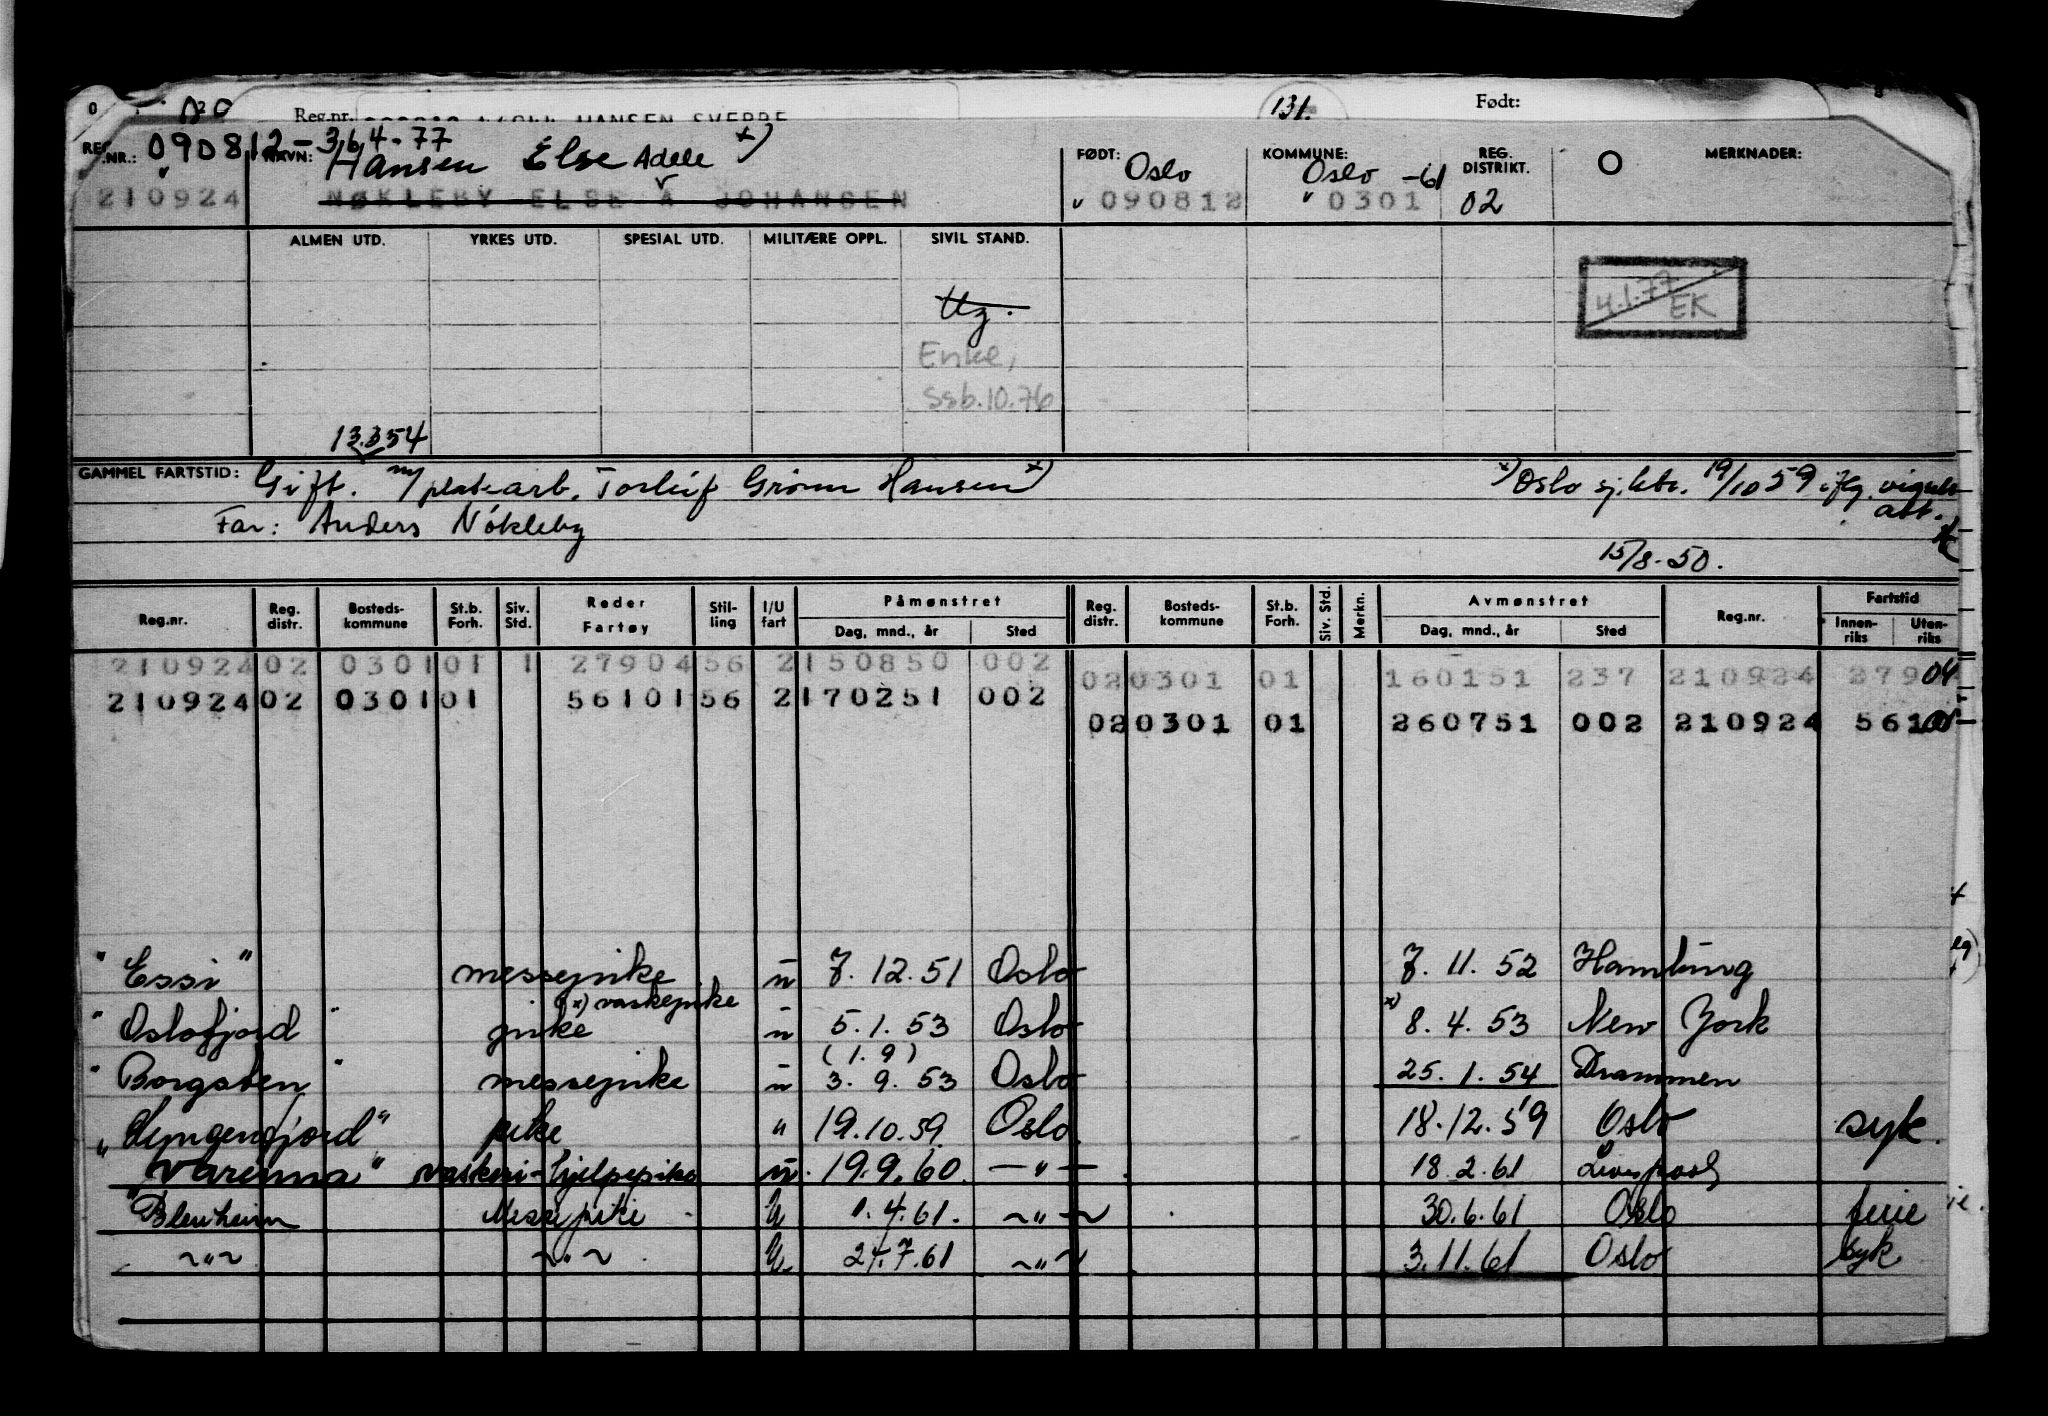 Reg.nr. HANSEN SVERRE 131. Født:
REG.NR.: 090812-364-77 NAVN: Hansen Else Adele x) FØDT: Oslo KOMMUNE: Oslo -61 REG. DISTRIKT. O MERKNADER:
210924 NØKLEBY ELSE A JOHANSEN " 090812 " 0301 02
ALMEN UTD. YRKES UTD. SPESIAL UTD. MILITÆRE OPPL. SIVIL STAND.
Ug.
4.1.77 EK
Enke,
Ssb.10.76
13.3.54
GAMMEL FARTSTID: Gift. m/ platearb. Torleif Grönn Hansen x) x) Oslo sj.ktr. 19/10 59 iflg. vigsels
att.
Far: Anders Nökleby
15/8-50.
Reg.nr. Reg. distr. Bosteds- kommune St.b. Forh. Siv. Std. Reder Fartøy Stil- ling I/U fart Påmønstret Dag, mnd., år Sted Reg. distr. Bosteds- kommune St.b. Forh. Siv. Std. Merkn. Avmønstret Dag, mnd., år Sted Reg.nr. Fartstid Innen- riks Uten- riks
210924 02 0301 01 1 27904 56 2 150850 002 02 0301 01 160151 237 210924 279 04
210924 02 0301 01 56101 56 2 170251 002 02 0301 01 260751 002 210924 561 01
"Essi" messepike u 7. 12. 51 Oslo 7. 11. 52 Hamburg
x) vaskepike
"Oslofjord" pike u 5. 1. 53 Oslo x) 8. 4. 53 New York
(1. 9)
"Borgsten" messepike u 3. 9. 53 Oslo 25. 1. 54 Drammen
"Lyngenfjord" pike " 19.10.59. Oslo. 18.12.59 Oslo syk.
"Varenna" vaskeri-hjelpepike u. 19.9.60. —"— 18.2.61 Liverpool
"Blenheim Messepike U 1.4.61. ~"~ 30.6.61 Oslo ferie
~"~ ~"~ U 24.7.61 ~"~ 3.11.61 Oslo syk